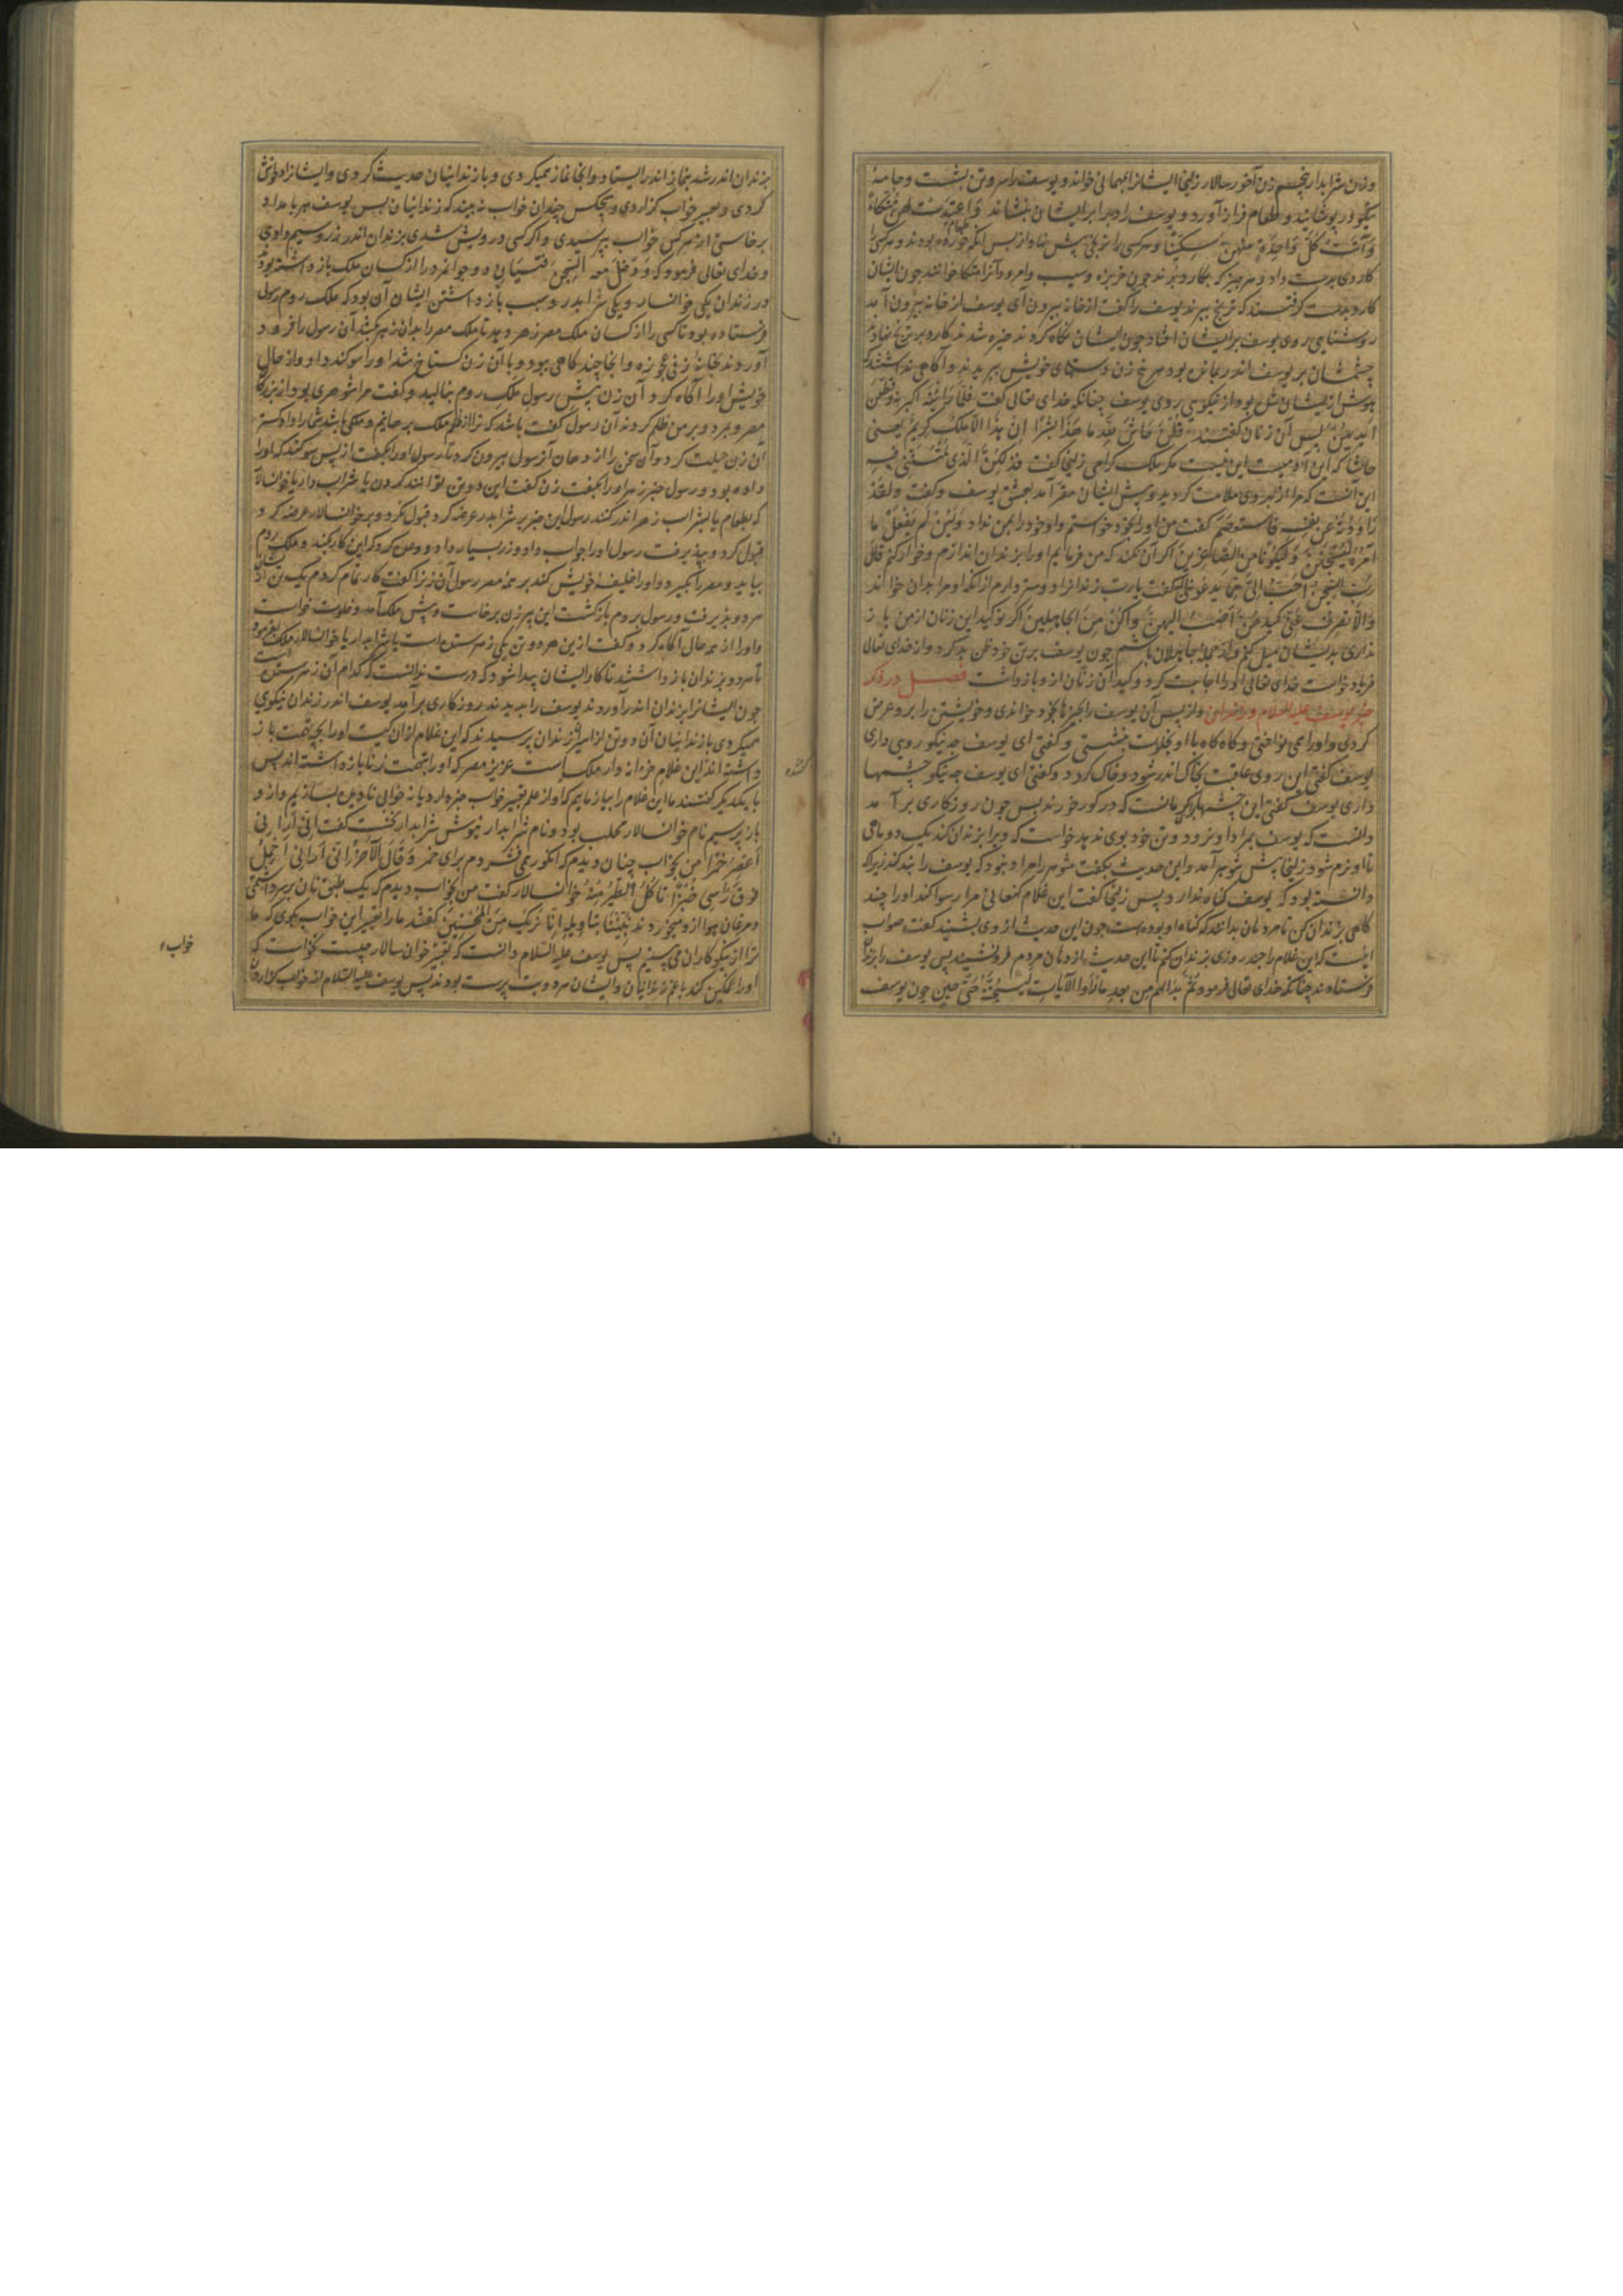 وزن شرابدار پنجم زن آخور سالار زلیخا ایشانرا بمهمانی خواند و یوسف را سر و تن بشست و جامهٔ
نیکو در پوشانید و طعام فراز آورد و یوسف را در برابر ایشان بنشاند وَاَعْتَدَتْ لَهُنَّ مُتَّكَاءً
وَآتَتْ كُلَّ وَاحِدَةٍ مِنْهُنَّ سِكِّينًا و هر کسی را ترنجی پیش نهاد از پس آنکه طعام خورده بودند و هر کسی را
کاردی بدست داد و هر چیز که بکارد برند چون خربزه و سیب و امرود آنرا متکا خوانند چون ایشان
کارد بدست گرفتند که ترنج ببرند یوسف را گفت از خانه بیرون آی یوسف از خانه بیرون آمد
روشنایی روی یوسف بر ایشان افتاد چون ایشان نگاه کردند خیره شدند کارد بر ترنج نهاده
چشمشان بر یوسف اندر بماند بود هر پنج زن دستهای خویش ببریدند و آگاهی نداشتند که
هوش از ایشان بشده بود از نیکویی روی یوسف چنانکه خدای تعالی گفت فَلَمَّا رَأَيْنَهُ أَكْبَرْنَهُ وَقَطَّعْنَ
أَيْدِيَهُنَّ پس آن زنان گفتند قُلْنَ حَاشَ لِلَّهِ مَا هَذَا بَشَرًا إِنْ هَذَا إِلَّا مَلَكٌ كَرِيمٌ یعنی
حاشا که این آدمیست این نیست مگر ملک گرامی زلیخا گفت فَذَلِكُنَّ الَّذِي لُمْتُنَّنِي فِيهِ
این آنست که مرا از بهر وی ملامت کردید و پیش ایشان مقر آمد بعشق یوسف و گفت وَلَقَدْ
رَاوَدْتُهُ عَنْ نَفْسِهِ فَاسْتَعْصَمَ گفت من او را بخود خواستم و او خود را بمن نداد وَلَئِنْ لَمْ يَفْعَلْ مَا
آمُرُهُ لَيُسْجَنَنَّ وَلَيَكُونًا مِنَ الصَّاغِرِينَ اگر آن نکند که من فرمایم او را بزندان اندازم و خوار کنم قَالَ
رَبِّ السِّجْنُ أَحَبُّ إِلَيَّ مِمَّا يَدْعُونَنِي إِلَيْهِ گفت یارب زندانرا دوستر دارم از آنکه او مرا بدان خواند
وَإِلَّا تَصْرِفْ عَنِّي كَيْدَهُنَّ أَصْبُ إِلَيْهِنَّ وَأَكُنْ مِنَ الْجَاهِلِينَ اگر تو کید این زنان از من باز
نداری بدیشان میل کنم و از جمله جاهلان باشم چون یوسف بر تن خود ظن بد کرد و از خدای تعالی
فریاد خواست خدای تعالی او را اجابت کرد و کید آن زنان از و باز داشت فصل در ذکر
خبر یوسف علیه السلام در زندان و از پس آن یوسف را بهر چیزها بخود خواندی و خویشتن را برو عرض
کردی و او را همی نواختی و گاه گاه با او بخلوت بنشستی و گفتی ای یوسف چه نیکو رویی داری
یوسف گفتی این روی عاقبت بخاک اندر شود و خاک گردد و گفتی ای یوسف چه نیکو چشمها
داری یوسف گفتی این چشمها کرمانست که در گور خورند پس چون روزگاری برآمد
دانست که یوسف بمراد او نرود و تن خود بوی ندهد خواست که ویرا بزندان کند یک دو ماهی
تا او نرم شود زلیخا پیش شوهر آمد و این حدیث بگفت شوهر را مراد نبود که یوسف را بند کند زیرا که
دانسته بود که یوسف گناه ندارد پس زلیخا گفت این غلام کنعانی مرا رسوا کند او را چند
گاهی بزندان کن تا مردمان بدانند که گناه او بوده است چون این حدیث از وی بشنید گفت صواب
اینست که این غلام را چند روزی بزندان کنم تا این حدیث از دهان مردم فرو نشیند پس یوسف را بزندان
فرستادند چنانکه خدای تعالی فرمود ثُمَّ بَدَا لَهُمْ مِنْ بَعْدِ مَا رَأَوُا الْآيَاتِ لَيَسْجُنُنَّهُ حَتَّى حِينٍ چون یوسف
بزندان اندر شد بنماز اندر ایستاد و آنجا نماز همیکردی و با زندانیان حدیث کردی و ایشانرا دل خوش
کردی و تعبیر خواب گزاردی و هیچکس چندان خواب نه بیند که زندانیان پس یوسف هر بامداد
برخاستی از هر کس خواب بپرسیدی و اگر کسی درویش شدی بزندان اندر زر و سیم دادی
و خدای تعالی فرمود که وَدَخَلَ مَعَهُ السِّجْنَ فَتَيَانِ و دو جوانمرد را از کسان ملک باز داشته بود
در زندان یکی خوانسالار و یکی شرابدار و سبب باز داشتن ایشان آن بود که ملک روم رسول
فرستاده بود تا کسی را از کسان ملک مصر زهر دهد تا ملک مصر را بدان زهر بکشد آن رسول را فرود
آوردند بخانهٔ زنی عجوزه و آنجا چند گاهی ببود و با آن زن گستاخ شد او را سوگند داد و از حال
خویش او را آگاه کرد آن زن پیش رسول ملک روم بنالید و گفت مرا شوهری بود از بزرگان
مصر و بمرد و بر من ظلم کردند آن رسول گفت باشد که ترا از ظلم ملک برهانیم و ملکی باشد شما را دادگستر
آن زن حیلت کرد و آن سخن را از دهان آن رسول بیرون کرد تا رسول او را بگفت از پس سوگند که او را
داده بود و رسول خبر زهر او را بگفت زن گفت این دو تن توانند کردن یا شراب دار یا خوانسالار
که بطعام یا بشراب زهر اندر کنند رسول این خبر بر شرابدار عرضه کرد قبول نکرد و بر خوانسالار عرضه کرد
قبول کرد و بپذیرفت رسول او را جواب داد و زر بسیار داد و وعده کرد که این کار بکند و ملک روم
بیاید و مصر را بگیرد و او را خلیفهٔ خویش کند بر همهٔ مصر رسول آن زن را گفت کار تمام کردم یک تن از آن
هر دو بپذیرفت و رسول بروم بازگشت این پیر زن برخاست و پیش ملک آمد و خلوت خواست
و او را از همه حال آگاه کرد و گفت ازین هر دو تن یکی زهر ستده است یا شرابدار یا خوانسالار ملک بفرمود
تا هر دو بزندان باز داشتند تا کار ایشان پیدا شود که درست ندانست که کدام آن زهر ستده است
چون ایشانرا بزندان اندر آوردند یوسف را بدیدند روزگاری برآمد یوسف اندر زندان نیکویی
همیکردی با زندانیان آن دو تن از امیر زندان پرسیدند که این غلام از آن کیست او را بچه تهمت باز
داشته‌اند این غلام خزانه دار ملک است عزیز مصر که او را بتهمت زنا باز داشته‌اند پس
با یکدیگر گفتند ما این غلام را بیازماییم که او از علم تعبیر خواب خبر دارد یا نه خوابی نادیده بسازیم و از و
باز پرسیم نام خوانسالار محلب بود و نام شرابدار نبوش شرابدار نخست گفت إِنِّي أَرَانِي
أَعْصِرُ خَمْرًا من بخواب چنان دیدم که انگور همی فشردم برای خمر وَقَالَ الْآخَرُ إِنِّي أَرَانِي أَحْمِلُ
فَوْقَ رَأْسِي خُبْزًا تَأْكُلُ الطَّيْرُ مِنْهُ خوانسالار گفت من بخواب دیدم که یک طبق نان بر سر داشتمی
و مرغان هوا از و میخوردند نَبِّئْنَا بِتَأْوِيلِهِ إِنَّا نَرَاكَ مِنَ الْمُحْسِنِينَ گفتند ما را تعبیر این خواب بگوی که ما
ترا از نیکوکاران می بینیم پس یوسف علیه السلام دانست که تعبیر خوان سالار چیست نخواست که
او را غمگین کند با غم زندانیان و ایشان هر دو بت پرست بودند پس یوسف علیه السلام از خواب گزاردن
خواب